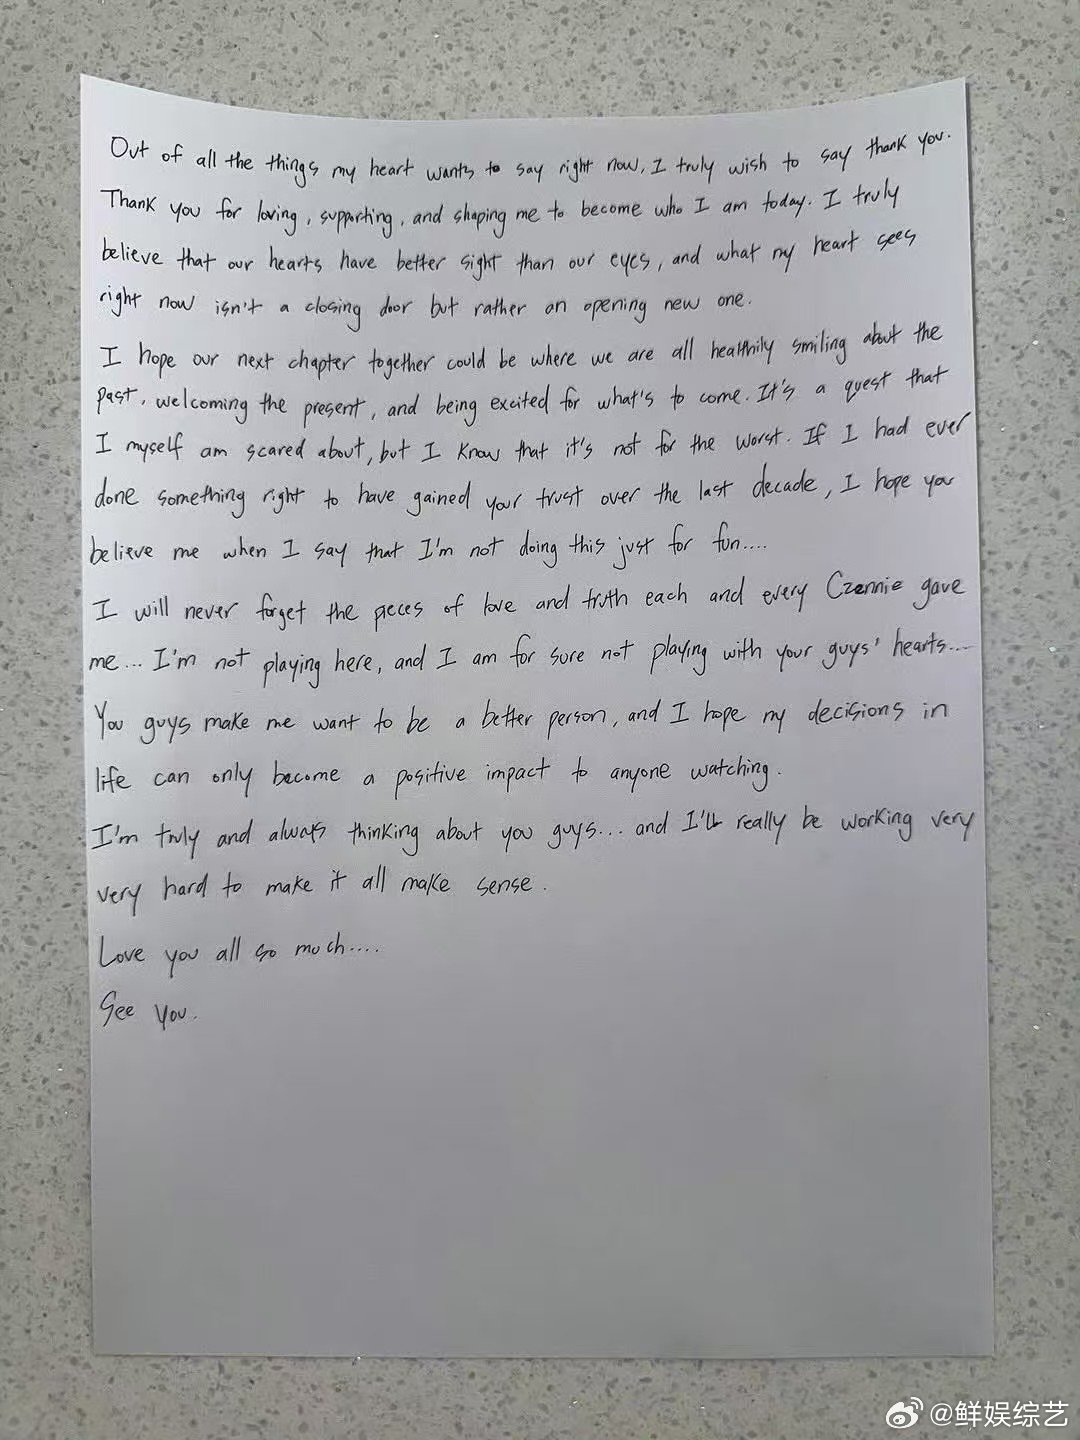 Out of all the things my heart wants to say right now, I truly wish to say thank you.
Thank you for loving, supporting, and shaping me to become who I am today. I truly
believe that our hearts have better sight than our eyes, and what my heart sees
right now isn't a closing door but rather an opening new one.
I hope our next chapter together could be where we are all healthily smiling about the
past, welcoming the present, and being excited for what's to come. It's a quest that
I myself am scared about, but I know that it's not for the worst. If I had ever
done something right to have gained your trust over the last decade, I hope you
believe me when I say that I'm not doing this just for fun....
I will never forget the pieces of love and truth each and every Czennie gave
me... I'm not playing here, and I am for sure not playing with your guys' hearts....
You guys make me want to be a better person, and I hope my decisions in
life can only become a positive impact to anyone watching.
I'm truly and always thinking about you guys... and I'll really be working very
very hard to make it all make sense.
Love you all so much....
See you.
@鲜娱综艺